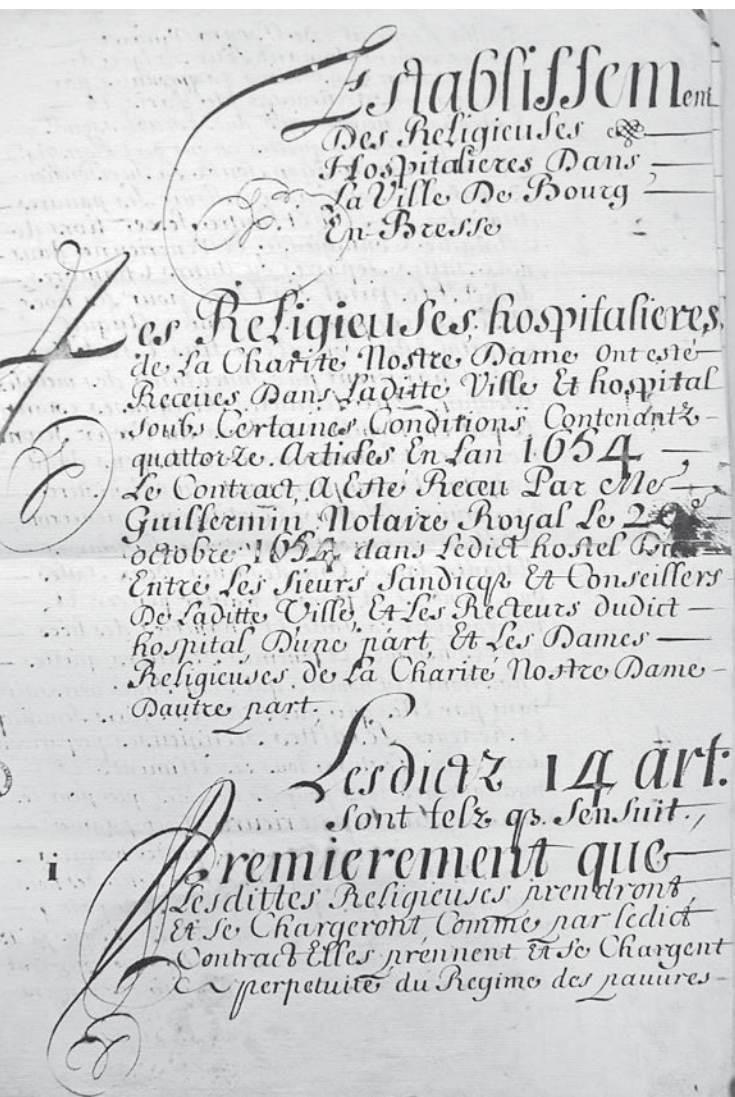 Establissement
Des Religieuses
Hospitalieres Dans
La Ville De Bourg
En Bresse
Les Religieuses hospitalieres,
de La Charité Nostre Dame ont esté
Receues Dans Laditte Ville Et hospital
soubs Certaines Conditions Contenantz
quattorze Articles En Lan 1654
Le Contract A Esté Receu Par Me
Guillermin Notaire Royal Le
octobre 1654 dans Ledict hostel
Entre Les Sieurs Sandicqs Et Conseillers
De Laditte Ville, Et Les Recteurs dudict
hospital D'une part, Et Les Dames
Religieuses de La Charité Nostre Dame
Dautre part.
Lesdictz 14 art:
sont telz qs. sensuit.
i Premierement que
Lesdittes Religieuses prendront,
Et se Chargeront Comme par ledict
Contract Elles prennent Et se Chargent
A perpetuité du Regime des pauures